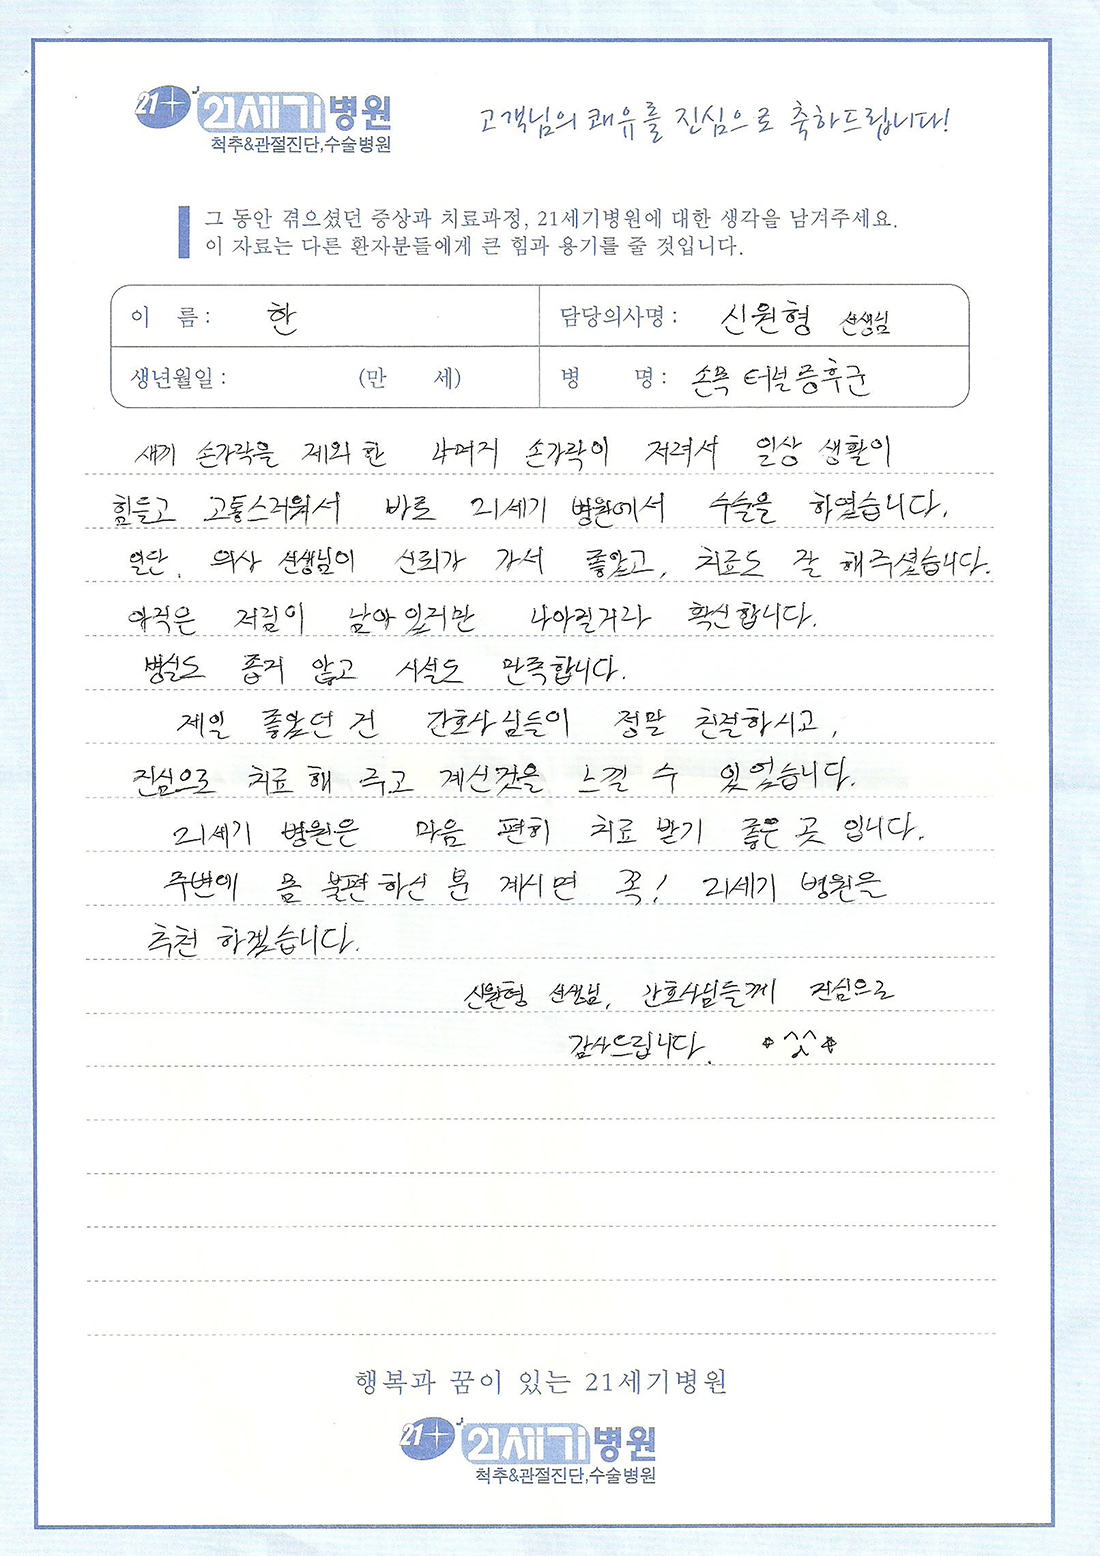 21+ 21세기병원
척추&관절진단,수술병원
고객님의 쾌유를 진심으로 축하드립니다!
그 동안 겪으셨던 증상과 치료과정, 21세기병원에 대한 생각을 남겨주세요.
이 자료는 다른 환자분들에게 큰 힘과 용기를 줄 것입니다.
이 름 : 한
담당의사명 : 신원형 선생님
생년월일 : (만 세)
병 명 : 손목 터널증후군
새끼 손가락을 제외한 나머지 손가락이 저려서 일상 생활이
힘들고 고통스러워서 바로 21세기 병원에서 수술을 하였습니다.
일단, 의사 선생님이 신뢰가 가서 좋았고, 치료도 잘 해주셨습니다.
아직은 저림이 남아있지만 나아질거라 확신합니다.
병실도 좁지 않고 시설도 만족합니다.
제일 좋았던 건 간호사님들이 정말 친절하시고,
진심으로 치료 해 주고 계신것을 느낄 수 있었습니다.
21세기 병원은 마음 편히 치료 받기 좋은 곳 입니다.
주변에 몸 불편하신 분 계시면 꼭! 21세기 병원을
추천 하겠습니다.
신원형 선생님, 간호사님들께 진심으로
감사드립니다. ^^
행복과 꿈이 있는 21세기병원
21+ 21세기병원
척추&관절진단,수술병원